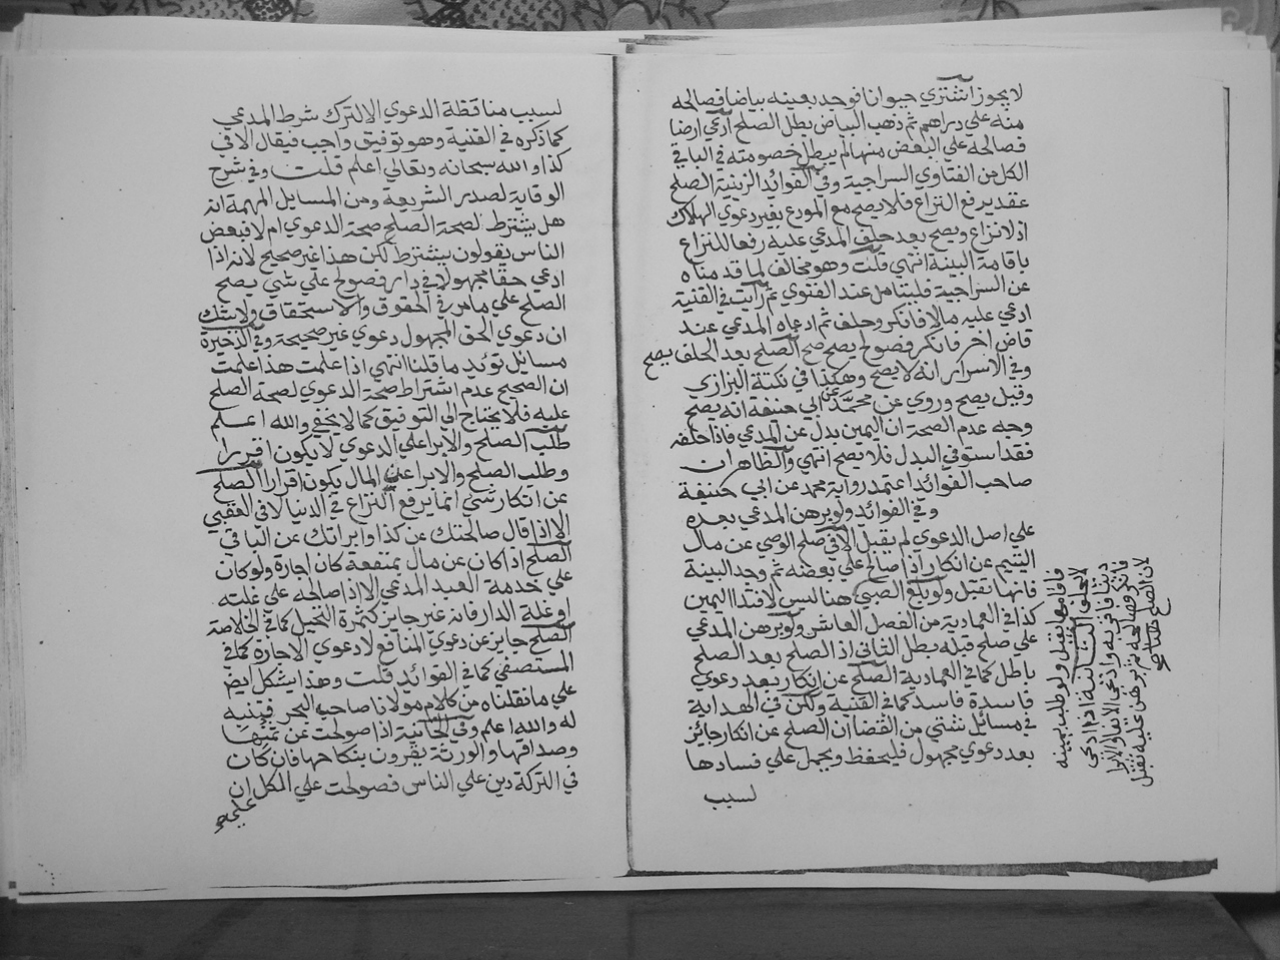 لا يجوز اشتري حيوانا فوجد بعينه بياضا فصالحه
منه علي دراهم ثم ذهب البياض بطل الصلح ادعي ارضا
فصالحه علي البعض منها لم يبطل خصومته في الباقي
الكل من الفتاوي السراجية وفي الفوائد الزينية الصلح
عقد يرفع النزاع فلا يصح مع المودع بغير دعوي الهلاك
اذ لا نزاع ويصح بعد حلف المدعي عليه رفعا للنزاع
باقامة البينة انتهي قلت وهو مخالف لما قدمناه
عن السراجية فليتامل عند الفتوي ثم رايت في القنية
ادعي عليه مالا فانكر وحلف ثم ادعاه المدعي عند
قاض اخر فانكر فصولح يصح صح الصلح بعد الحلف يصح
وفي الاسرار انه لا يصح وهكذا في نكتة البزازي
وقيل يصح وروي عن محمد عن ابي حنيفة انه يصح
وجه عدم الصحة ان اليمين بدل عن المدعي فاذا حلفه
فقد استوفي البدل فلا يصح انتهي والظاهر ان
صاحب الفوائد اعتمد رواية محمد عن ابي حنيفة
وفي الفوائد ولو برهن المدعي بعده
علي اصل الدعوي لم يقبل الا في صلح الوصي عن مال
اليتيم عن انكار اذا صالح علي بعضه ثم وجد البينة
فانها تقبل ولو بلغ الصبي هنا ليس لافتدا اليمين
كذا في العمادية من الفصل العاشر ولو برهن المدعي
علي صلح قبله بطل الثاني اذ الصلح بعد الصلح
باطل كما في العمادية الصلح عن انكار بعد دعوي
فاسدة فاسد كما في القنية ولكن في الهداية
في مسائل شتي من القضا ان الصلح عن انكار جائز
بعد دعوي مجهول فليحفظ ويحمل علي فسادها
لسبب
فاقامها تقبل ولو طلب يمينه
لا يحلف الثانية اذا ادعي
دينا فاقر به وادعي الايفا او الابرا
فانكر فصالحه ثم برهن عليه تقبل
لان الصلح هنا
لسبب مناقظة الدعوي الا لترك شرط المدعي
كما ذكره في القنية وهو توفيق واجب فيقال الا في
كذا والله سبحانه وتعالي اعلم قلت وفي شرح
الوقاية لصدر الشريعة ومن المسايل المهمة انه
هل يشترط لصحة الصلح صحة الدعوي ام لا فبعض
الناس يقولون يشترط لكن هذا غير صحيح لانه اذا
ادعي حقا مجهولا في دار فصولح علي شي يصح
الصلح علي ما مر في الحقوق والاستحقاق ولا شك
ان دعوي الحق المجهول دعوي غير صحيحة وفي الذخيرة
مسايل تؤيد ما قلنا انتهي اذا علمت هذا علمت
ان الصحيح عدم اشتراط صحة الدعوي لصحة الصلح
عليه فلا يحتاج الي التوفيق كما لا يخفي والله اعلم
طلب الصلح والابرا علي الدعوي لا يكون اقرارا
وطلب الصلح والابرا عن المال يكون اقرارا الصلح
عن انكار شي انما يرفع النزاع في الدنيا لا في العقبي
الا اذا قال صالحتك عن كذا وابراتك عن الباقي
الصلح اذ كان عن مال بمنفعة كان اجارة ولو كان
علي خدمة العبد المدعي الا اذا صالحه علي غلته
او غلة الدار فانه غير جايز كثمرة النخيل كما في الخلاصة
الصلح جايز عن دعوي المنافع لا دعوي الاجارة كما في
المستصفي كما في الفوائد قلت وهذا يشكل ايض
علي ما نقلناه من كلام مولانا صاحب البحر فتنبه
له والله اعلم وفي الخانية اذا صولحت عن ثمنها
وصداقها والورثة يقرون بنكاحها فان كان
في التركة دين علي الناس فصولحت علي الكل ان
علي